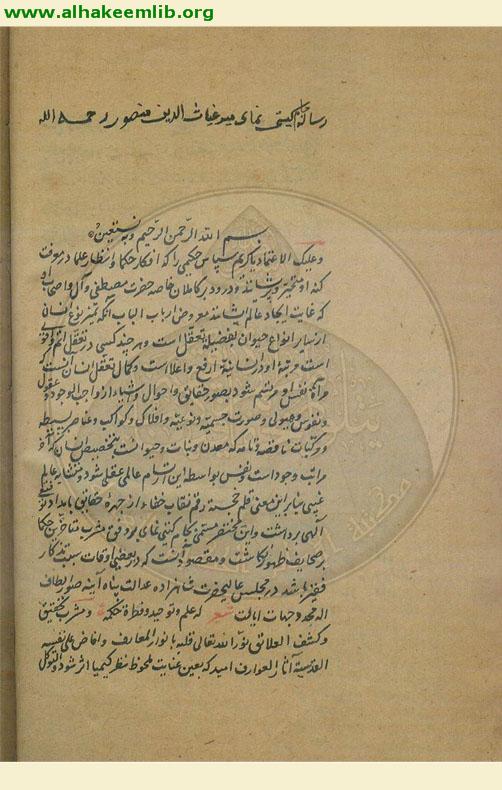 www.alhakeemlib.org
رساله جام گیتی نمای میر غیاث الدین منصور رحمه الله
بسم الله الرحمن الرحیم وبه نستعین
وعلیک الاعتماد یا کریم سپاس حکیمی را که افکار حکما و انظار علما در معرفت
کنه او متحیر و پریشانند و درود بر کاملان خاصه حضرت مصطفی و آل و اصحاب او
که غایت ایجاد عالم ایشانند معروض ارباب الباب آنکه تمیز نوع انسان
از سایر انواع حیوان بفضیلة تعقل است و هر چند کسی در تعقل اتم و اقوی
است مرتبۀ او در انسانیة ارفع و اعلا است و کمال تعقل انسان آنست که
مرآة نفس او مرتسم شود بصور حقایق و احوال و اشباه از واجب الوجود و عقول
و نفوس و هیولی و صورت جسمیه و نوعیه و افلاک و کواکب و عناصر بسیطه
و مرکبات ناقصه و تامه که معدن و نبات و حیوانست بتخصیص انسان که آخر
مراتب وجود است و نفس بواسطه این ارتسام عالمی عقلی شود
غیبی بنابراین معنی قلم خجسته رقم نقاب خفا از چهرۀ حقایق بامداد توفیق
آلهی برداشت و این مختصر مسمی بجام گیتی نمای بر وفق مشرب متأخرین حکما
بر صحایف ظهور نگاشت و مقصود آنست که در بعضی اوقات سبب تذکار
فقیر باشد در مجلس عالیحضرت شاهزاده عدالت پناه آینه صور الطاف
اله مجدد جهات ایالت شعر که علم و توحید و فطرة حکمة و مشرب تحقیق
و کشف العلائق نور الله تعالی قلبه بانوار المعارف و افاض علی نفسه
القدسیة آثار العوارف امید که بعین عنایت ملحوظ نظر کیمیا اثر شود والتوکل